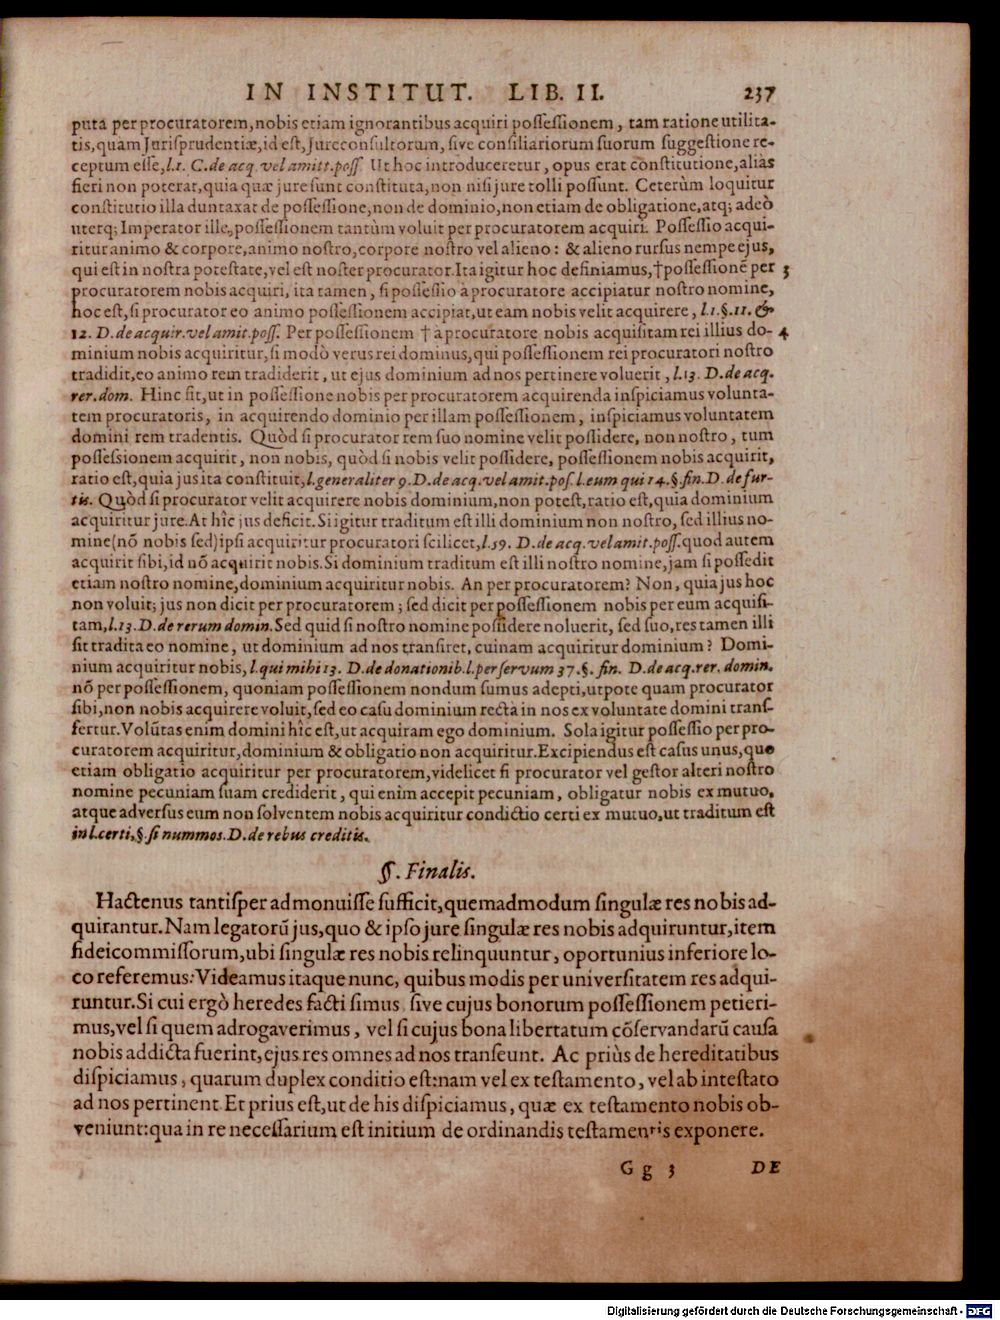 IN INSTITUT. LIB. II. 237
puta per procuratorem, nobis etiam ignorantibus acquiri poſſeſſionem, tam ratione utilita-
tis, quàm Juriſprudentiæ, id eſt, Jureconſultorum, ſive conſiliariorum ſuorum ſuggeſtione re-
ceptum eſſe, l.1. C. de acq. vel amitt. poſſ. Ut hoc introduceretur, opus erat conſtitutione, aliàs
fieri non poterat, quia quæ jure ſunt conſtituta, non niſi jure tolli poſſunt. Ceterùm loquitur
conſtitutio illa duntaxat de poſſeſſione, non de dominio, non etiam de obligatione, atq; adeò
uterq; Imperator ille, poſſeſſionem tantùm voluit per procuratorem acquiri. Poſſeſſio acqui-
ritur animo & corpore, animo noſtro, corpore noſtro vel alieno: & alieno rurſus nempe ejus,
qui eſt in noſtra poteſtate, vel eſt noſter procurator. Ita igitur hoc definiamus, † poſſeſſionē per 3
procuratorem nobis acquiri, ita tamen, ſi poſſeſſio à procuratore accipiatur noſtro nomine,
hoc eſt, ſi procurator eo animo poſſeſſionem accipiat, ut eam nobis velit acquirere, l.1. §. 11. &
12. D. de acquir. vel amit. poſſ. Per poſſeſſionem † à procuratore nobis acquiſitam rei illius do- 4
minium nobis acquiritur, ſi modò verus rei dominus, qui poſſeſſionem rei procuratori noſtro
tradidit, eo animo rem tradiderit, ut ejus dominium ad nos pertinere voluerit, l.13. D. de acq.
rer. dom. Hinc fit, ut in poſſeſſione nobis per procuratorem acquirenda inſpiciamus volunta-
tem procuratoris, in acquirendo dominio per illam poſſeſſionem, inſpiciamus voluntatem
domini rem tradentis. Quòd ſi procurator rem ſuo nomine velit poſſidere, non noſtro, tum
poſſeſsionem acquirit, non nobis, quòd ſi nobis velit poſſidere, poſſeſſionem nobis acquirit,
ratio eſt, quia jus ita conſtituit, l. generaliter 9. D. de acq. vel amit. poſ. l. eum qui 14. §. fin. D. de fur-
tis. Quòd ſi procurator velit acquirere nobis dominium, non poteſt, ratio eſt, quia dominium
acquiritur jure. At hîc jus deficit. Si igitur traditum eſt illi dominium non noſtro, ſed illius no-
mine (nō nobis ſed) ipſi acquiritur procuratori ſcilicet, l.59. D. de acq. vel amit. poſſ. quod autem
acquirit ſibi, id nō acquirit nobis. Si dominium traditum eſt illi noſtro nomine, jam ſi poſſedit
etiam noſtro nomine, dominium acquiritur nobis. An per procuratorem? Non, quia jus hoc
non voluit; jus non dicit per procuratorem; ſed dicit per poſſeſſionem nobis per eum acquiſi-
tam, l.13. D. de rerum domin. Sed quid ſi noſtro nomine poſſidere noluerit, ſed ſuo, res tamen illi
ſit tradita eo nomine, ut dominium ad nos tranſiret, cuinam acquiritur dominium? Domi-
nium acquiritur nobis, l. qui mihi 13. D. de donationib. l. per ſervum 37. §. fin. D. de acq. rer. domin.
nō per poſſeſſionem, quoniam poſſeſſionem nondum ſumus adepti, utpote quam procurator
ſibi, non nobis acquirere voluit, ſed eo caſu dominium rectà in nos ex voluntate domini tranſ-
fertur. Volūtas enim domini hîc eſt, ut acquiram ego dominium. Sola igitur poſſeſſio per pro-
curatorem acquiritur, dominium & obligatio non acquiritur. Excipiendus eſt caſus unus, quo
etiam obligatio acquiritur per procuratorem, videlicet ſi procurator vel geſtor alteri noſtro
nomine pecuniam ſuam crediderit, qui enim accepit pecuniam, obligatur nobis ex mutuo,
atque adverſus eum non ſolventem nobis acquiritur condictio certi ex mutuo, ut traditum eſt
in l. certi, §. ſi nummos. D. de rebus creditis.
§. Finalis.
Hactenus tantiſper admonuiſſe ſufficit, quemadmodum ſingulæ res nobis ad-
quirantur. Nam legatorū jus, quo & ipſo jure ſingulæ res nobis adquiruntur, item
fideicommiſſorum, ubi ſingulæ res nobis relinquuntur, oportunius inferiore lo-
co referemus: Videamus itaque nunc, quibus modis per univerſitatem res adqui-
runtur. Si cui ergò heredes facti ſimus, ſive cujus bonorum poſſeſſionem petieri-
mus, vel ſi quem adrogaverimus, vel ſi cujus bona libertatum cōſervandarū cauſa
nobis addicta fuerint, ejus res omnes ad nos tranſeunt. Ac priùs de hereditatibus
diſpiciamus, quarum duplex conditio eſt: nam vel ex teſtamento, vel ab inteſtato
ad nos pertinent. Et prius eſt, ut de his diſpiciamus, quæ ex teſtamento nobis ob-
veniunt: qua in re neceſſarium eſt initium de ordinandis teſtamentis exponere.
Gg 3 DE
Digitalisierung gefördert durch die Deutsche Forschungsgemeinschaft - DFG